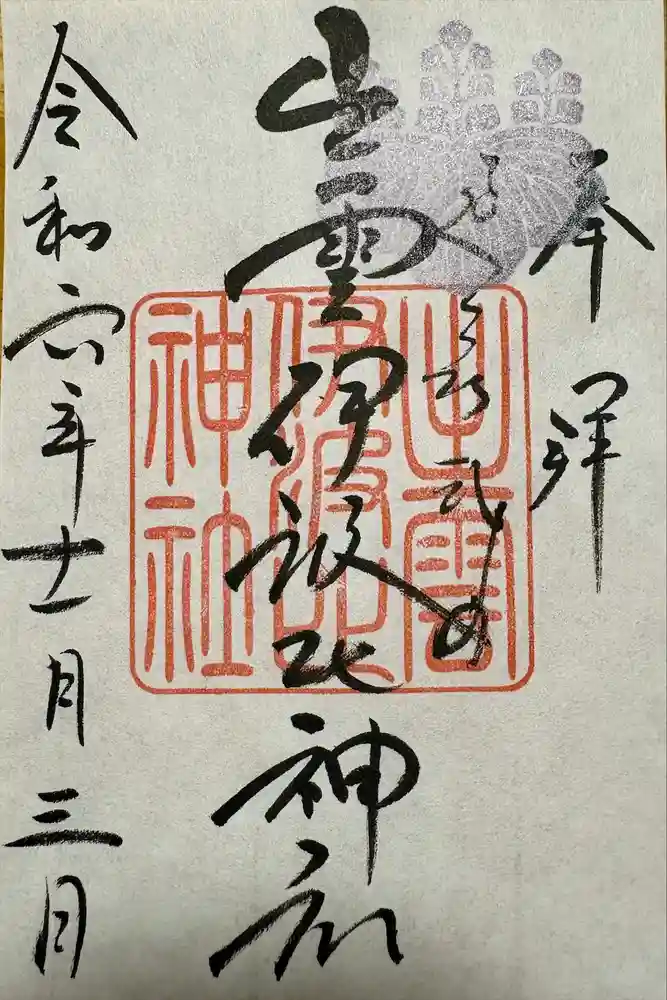 奉拝
出雲伊波比神社
令和六年十一月三日
出雲
伊波比
神社